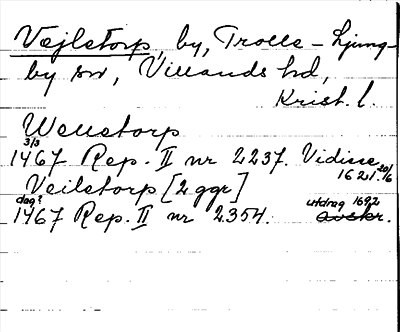 Vejlstorp, by, Trolle-Ljung-
by sn, Villands hd,
Krist. l.
Wellstorp
3/3
1467 Rep. II nr 2237. Vidisse
1621 20/6
Veilstorp [2 ggr]
dag? utdrag 1692
1467 Rep. II nr 2354. avskr.